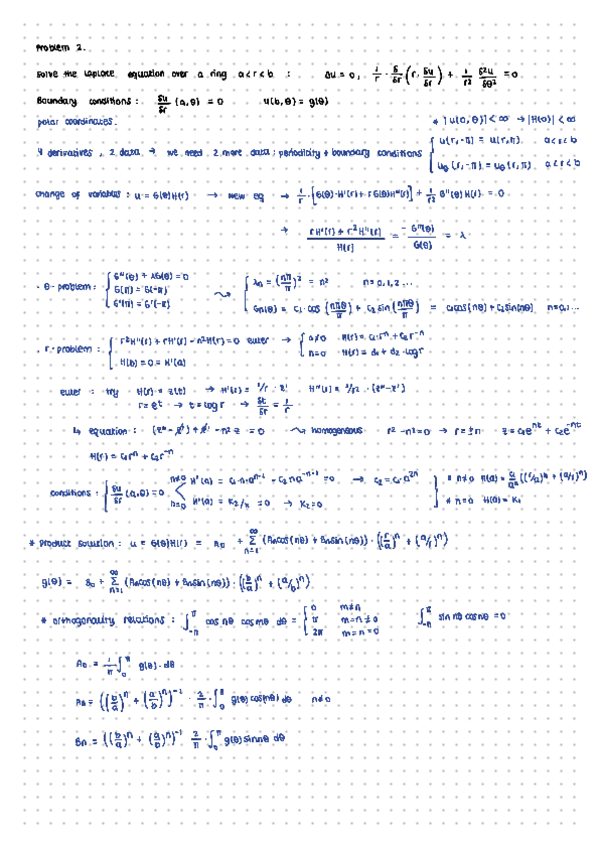 Problem 2.
Solve the Laplace equation over a ring a<r<b : Δu = 0, 1/r · δ/δr (r · δu/δr) + 1/r² δ²u/δθ² = 0
Boundary conditions: δu/δr (a,θ) = 0 u(b,θ) = g(θ)
polar coordinates. * |u(0,θ)| < ∞ → |H(0)| < ∞
4 derivatives, 2 data → we need 2 more data: periodicity + boundary conditions { u(r,-π) = u(r,π) a<r<b
uθ(r,-π) = uθ(r,π) a<r<b
change of variables: u = G(θ)H(r) → new eq → 1/r · [G(θ)·H'(r) + rG(θ)H''(r)] + 1/r² G''(θ)H(r) = 0
→ rH'(r) + r²H''(r) / H(r) = -G''(θ) / G(θ) = λ
· θ-problem: { G''(θ) + λG(θ) = 0
G(π) = G(-π)
G'(π) = G'(-π)
⇝ { λn = (nπ/π)² = n² n=0,1,2...
Gn(θ) = c₁·cos(nπθ/π) + c₂ sin(nπθ/π) = c₁cos(nθ) + c₂sin(nθ) n=0,1...
· r-problem: { r²H''(r) + rH'(r) - n²H(r) = 0 euler → { n≠0 H(r) = c₁·rⁿ + c₂r⁻ⁿ
H(b) = 0 = H'(a) n=0 H(r) = d₁ + d₂·log r
euler: try H(r) = z(t) → H'(r) = 1/r · z' H''(r) = 1/r² · (z''-z')
r = eᵗ → t = log r → δt/δr = 1/r
↳ equation: (z''-z') + z' - n²z = 0 ⇝ homogenous r²-n²=0 → r=±n z = c₁eⁿᵗ + c₂e⁻ⁿᵗ
H(r) = c₁rⁿ + c₂r⁻ⁿ
conditions: { δu/δr (a,θ) = 0 n≠0 H'(a) = c₁·n·aⁿ⁻¹ - c₂na⁻ⁿ⁻¹ = 0 → c₂ = c₁·a²ⁿ * n≠0
n=0 H'(a) = K₂/a = 0 → K₂ = 0 * n=0 H(a) = K₁
* product solution: u = G(θ)H(r) = A₀ + ∞Σn=1 (Ancos(nθ) + Bnsin(nθ)) · ((r/a)ⁿ + (a/r)ⁿ)
g(θ) = + ∞Σn=1 (Ancos(nθ) + Bnsin(nθ)) · ((b/a)ⁿ + (a/b)ⁿ)
* orthogonality relations: ∫-π^π cos nθ cos mθ dθ = { 0 m≠n
π m=n≠0
2π m=n=0
∫-π^π sin nθ cos nθ = 0
A₀ = 1/π ∫₀^π g(θ)·dθ
An = ((b/a)ⁿ + (a/b)ⁿ)⁻¹ · 2/π · ∫₀^π g(θ)cos(nθ)dθ n≠0
Bn = ((b/a)ⁿ + (a/b)ⁿ)⁻¹ 2/π · ∫₀^π g(θ)sin nθ dθ